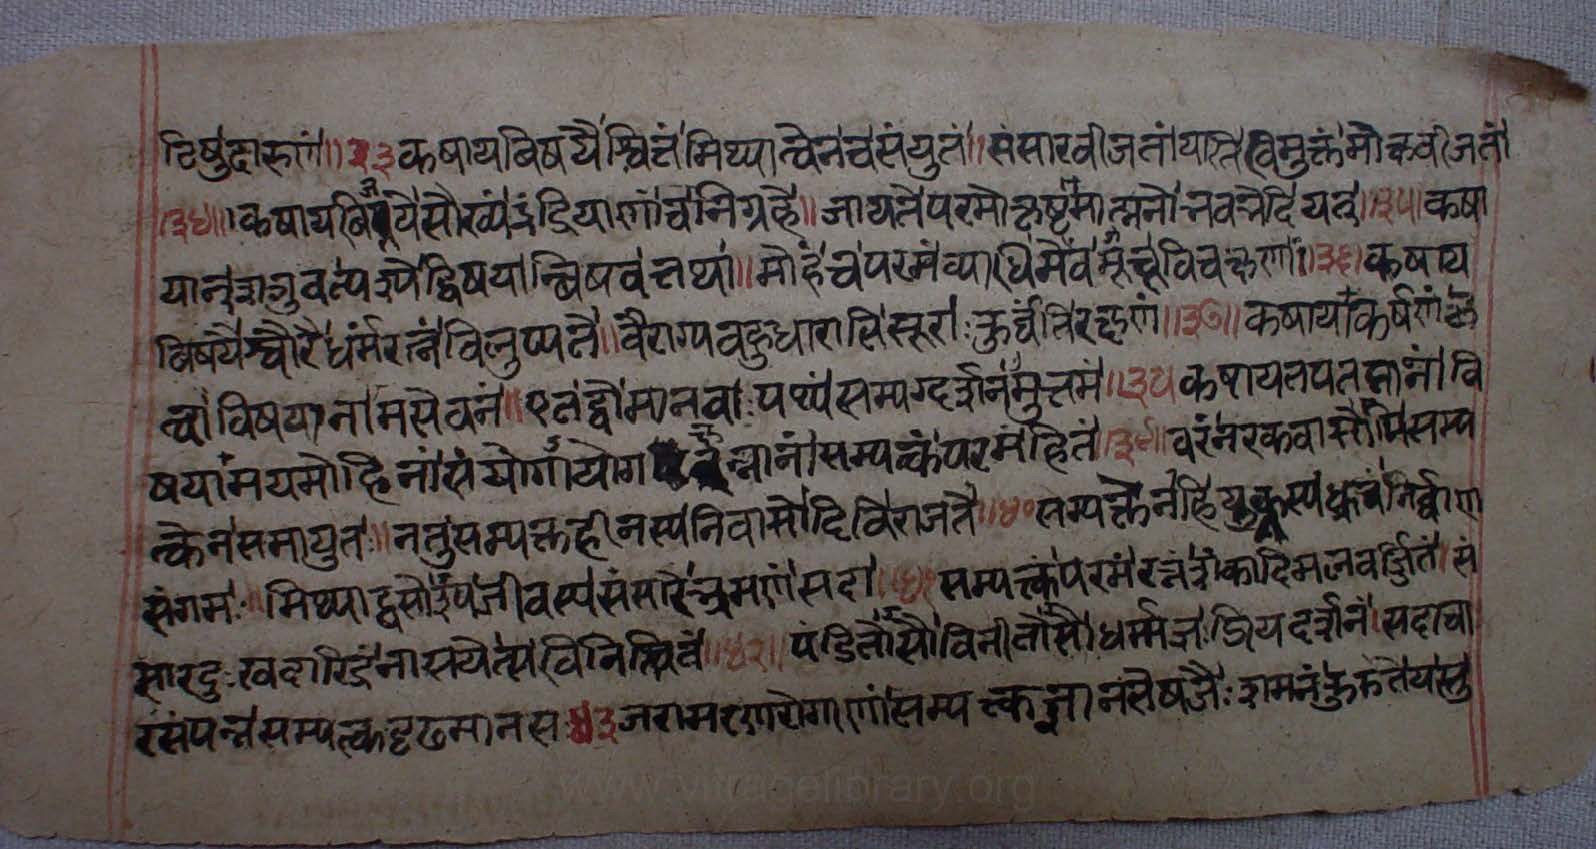 टिषुदारुणं॥३३कषायविषयैश्चित्तंमिथ्यात्वेनचसंयुतं॥संसारवीजतांयातिविमुक्तंमोक्षवीजतां
॥३४॥कषायविजयेसौख्यंइंद्रियाणांचनिग्रहे॥जायतेपरमोत्कृष्टमात्मनोनवभेदियत्॥३५॥कषा
यान्शत्रुवत्पश्येद्विषयान्विषवत्तथा॥मोहंचपरमंव्याधिमेवमूचुर्विचक्षणाः॥३६॥कषाय
विषयैश्चौरैर्धर्मरत्नंविलुप्यते॥वैराग्यखड्गधाराभिःसूराःकुर्वंतिरक्षणं॥३७॥कषायकर्षणंकृ
त्वाविषयानामसेवनं॥एतद्भोमानवाःपथ्यंसम्यग्दर्शनमुत्तमं॥३८कषायातपतप्तानांवि
षयामयमोहिनांसंयोगायोगखिन्नानांसम्यक्त्वंपरमंहितं॥३९॥वरंनरकवासोपिसम्य
त्केनसमायुतः॥नतुसम्यक्तहीनस्यनिवासोदिविराजते॥४०सम्यक्तेनहियुक्तस्यध्रुवंनिर्व्वाण
संगमः॥मिथ्यादृसोस्यजीवस्यसंसारेभ्रमणंसदा॥४१सम्यक्त्कंपरमंरत्नंशंकादिमलवर्ज्जितं॥सं
सारदुःखदारिद्रंनासयेत्सविनिश्चितं॥४२॥पंडितोसौविनीतोसौधर्मज्ञःप्रियदर्शनं॥सदाचा
रसंपन्नसम्यत्कदृढमानसः४३जरामरणरोगाणांसम्यत्कज्ञानभेषजैःशमनंकुरुतेयस्तु
www.vitragelibrary.org